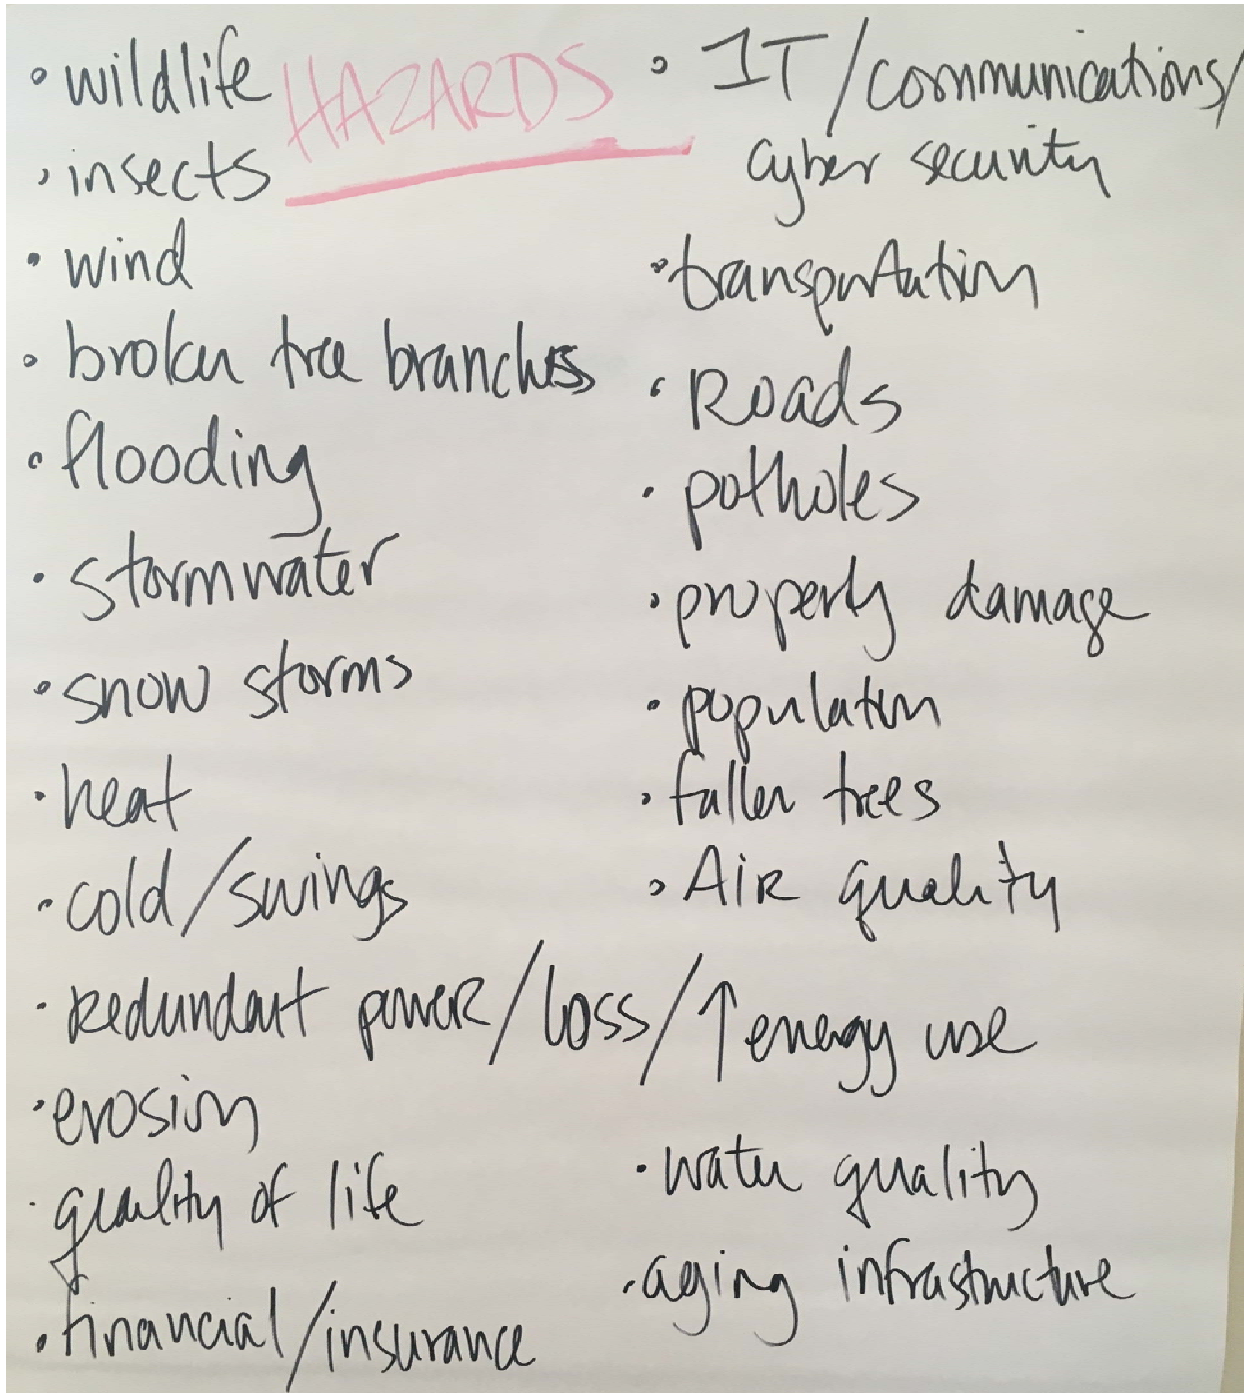 HAZARDS
• wildlife
• insects
• wind
• broken tree branches
• flooding
• stormwater
• snow storms
• heat
• cold/swings
• redundant power/loss/↑ energy use
• erosion
• quality of life
• financial/insurance
• IT/communications/
cyber security
• transportation
• Roads
• potholes
• property damage
• population
• fallen trees
• AIR quality
• water quality
• aging infrastructure